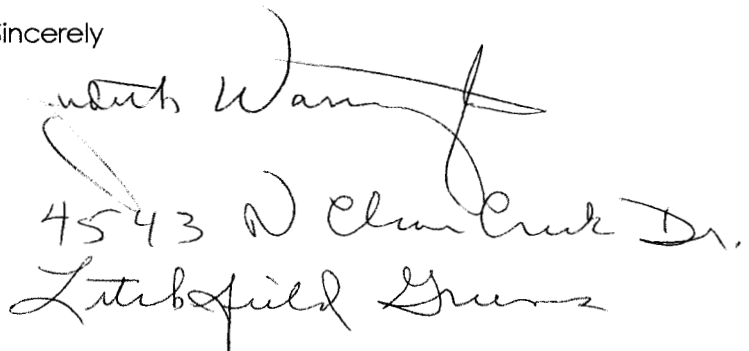 Sincerely
Judith
4543 N Clear Creek Dr.
Litchfield Greens